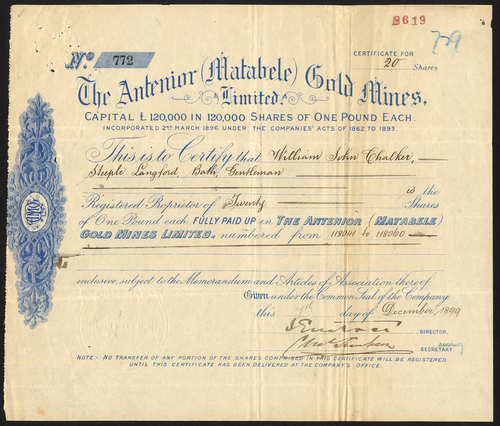 B619
729
No. 772
CERTIFICATE FOR
20 Shares
The Antenior (Matabele) Gold Mines,
Limited.
CAPITAL £120,000 IN 120,000 SHARES OF ONE POUND EACH.
INCORPORATED 2ND MARCH 1896 UNDER THE COMPANIES' ACTS OF 1862 TO 1893
This is to Certify that William John Chalker,
Steeple Langford, Bath, Gentleman
is the
Registered Proprietor of Twenty Shares
of One Pound each FULLY PAID UP in THE ANTENIOR (MATABELE)
GOLD MINES LIMITED. numbered from 118041 to 118060
inclusive, subject to the Memorandum and Articles of Association thereof
Given under the Common Seal of the Company
this day of December, 1899
DIRECTOR.
SECRETARY
NOTE:- NO TRANSFER OF ANY PORTION OF THE SHARES COMPRISED IN THIS CERTIFICATE WILL BE REGISTERED
UNTIL THIS CERTIFICATE HAS BEEN DELIVERED AT THE COMPANY'S OFFICE.